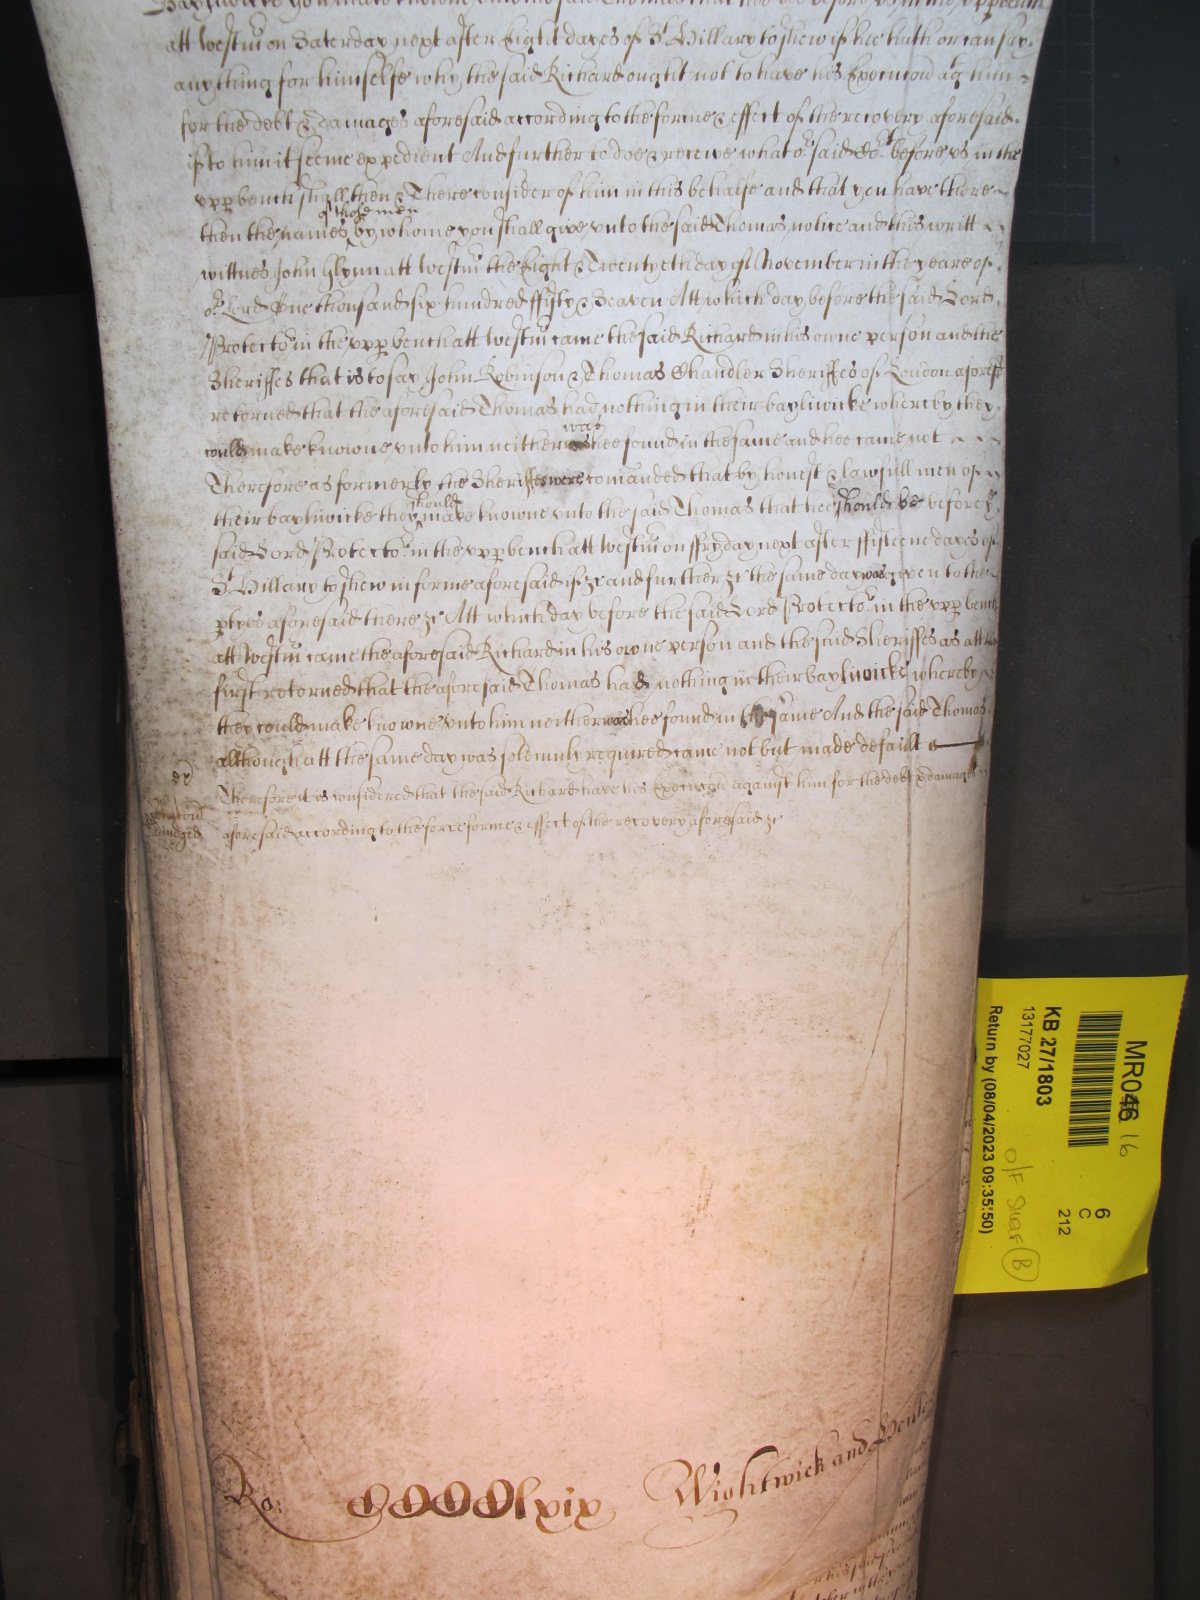 you make knowne unto the said Thomas that hee bee before us in the upper bench
att Westm on Saterday next after Eight dayes of St Hillary to shew if hee hath or can say
anything for himselfe why the said Richard ought not to have his Execucon agt him
for the debt & damages aforesaid according to the forme & effect of the recovery aforesaid
if to him it seeme expedient And further to doe & receive what or said Co:rt before us in the
upp bench shall then & There consider of him in this behalfe and that you have there
then the names of those men by whome you shall give unto the said Thomas notice and this writt
wittnes John Glynn att Westm the Eight & Twentyeth day of November in the yeare of
or Lord One thousand six hundred ffifty & Seaven Att which day before the said Lord
Protector in the upp bench att Westm came the said Richard in his owne person and the
Sheriffes that is to say John Robinson & Thomas Chandler Sheriffes of London aforesd
retorned that the aforesaid Thomas had nothing in their bayliwicke whereby they
could make knowne unto him neither was hee found in the same and hee came not
Therefore as formerly the Sheriffes were comanded that by honest & lawfull men of
their bayliwicke they should make knowne unto the said Thomas that hee should be before ye
said Lord Protector in the upp bench att Westm on ffryday next after ffifteene dayes of
St Hillary to shew in forme aforesaid if &c and further &c the same day was given to the
ptyes aforesaid there &c Att which day before the said Lord Protector in the upp bench
att Westm came the aforesaid Richard in his owne person and the said Sheriffes as att
first retorned that the aforesaid Thomas had nothing in their bayliwicke whereby
they could make knowne unto him neither was hee found in the same And the said Thomas
although att the same day was solemnly required came not but made defailt
Therefore it is considered that the said Richard have his Execucon against him for the debt & damages
aforesaid according to the force forme & effect of the recovery aforesaid &c
Ro: CCCClxix Wightwick and
MR046 16
6
C
212
KB 27/1803
13177027
Return by (08/04/2023 09:35:50)
O/F Shelf B